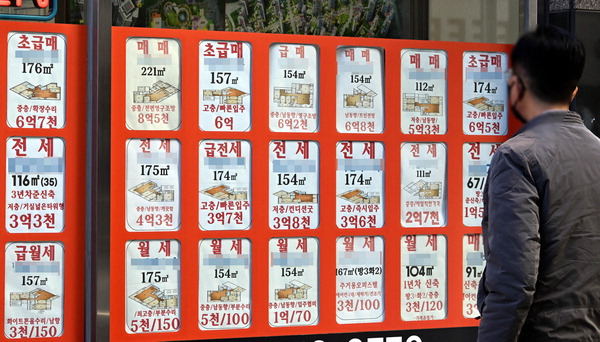 초급매
176㎡
중층/확장수리
6억7천
매 매
221㎡
8억5천
초급매
157㎡
고층/빠른입주
6억
급 매
154㎡
6억2천
매 매
154㎡
6억8천
매 매
112㎡
5억3천
초급매
174㎡
6억5천
전 세
116㎡(35)
3년차준신축
3억3천
전 세
175㎡
4억3천
급전세
174㎡
고층/빠른입주
3억7천
전 세
154㎡
3억8천
전 세
174㎡
고층/즉시입주
3억6천
전 세
111㎡
2억7천
전 세
67/
1억5
급월세
157㎡
3천/150
월 세
175㎡
최고층/부분수리
5천/150
월 세
154㎡
5천/100
월 세
154㎡
1억/70
월 세
167㎡(방3화2)
주거용오피스텔
3천/100
월 세
104㎡
1년차 신축
3천/120
91